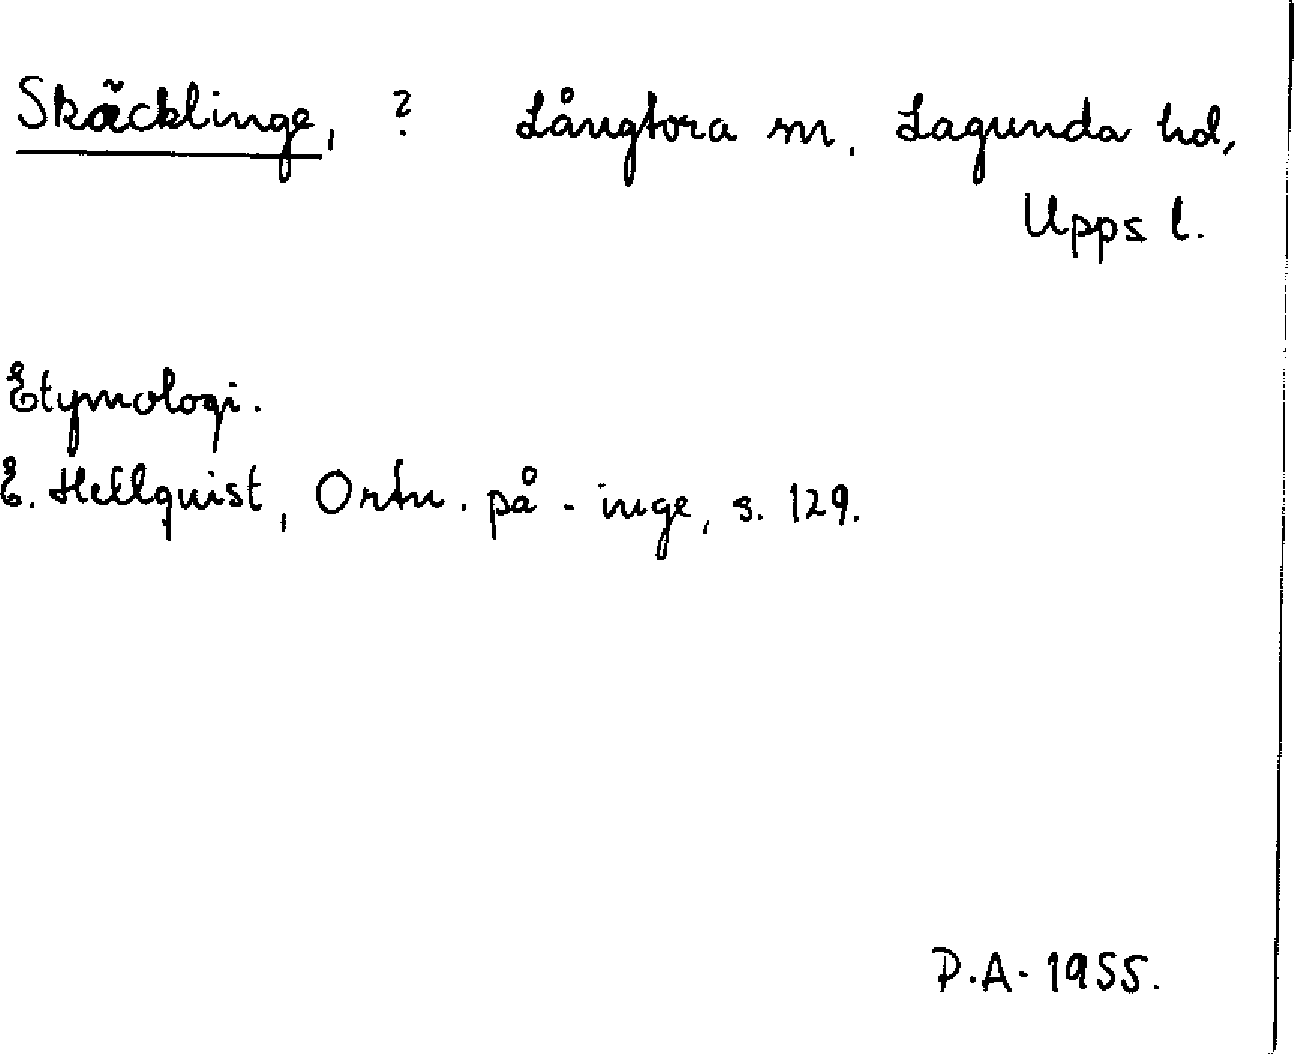 Skäcklinge, ? Långtora sn, Lagunda hd,
Upps l.
Etymologi.
E. Hellquist, Ortn. på -inge, s. 129.
P.A. 1955.